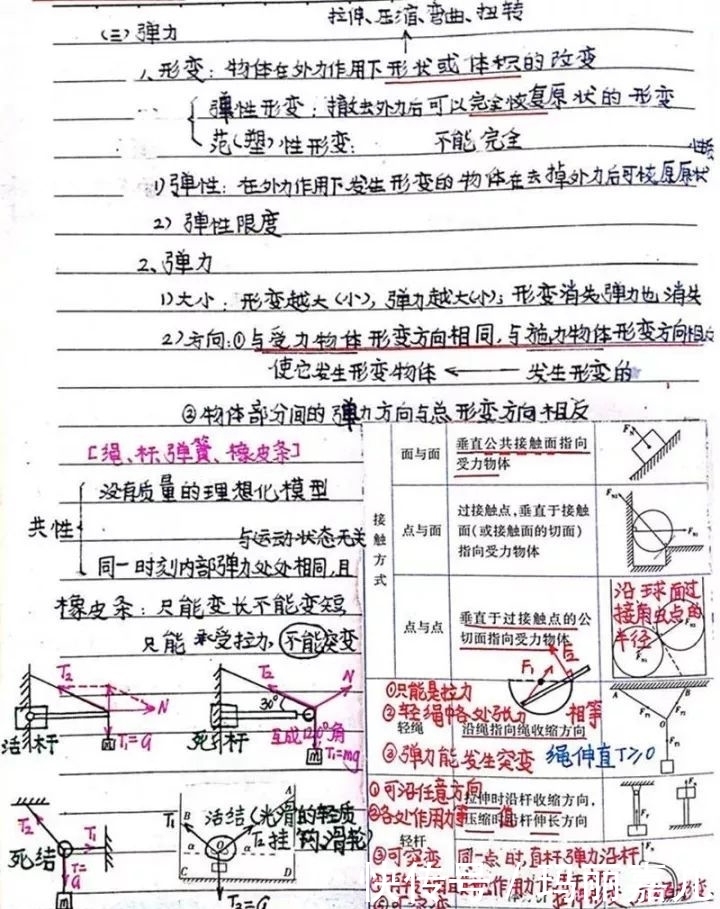 拉伸、压缩、弯曲、扭转
(三)弹力
1、形变：物体在外力作用下形状或体积的改变
弹性形变：撤去外力后可以完全恢复原状的形变
范(塑)性形变：不能完全
1)弹性：在外力作用下发生形变的物体在去掉外力后可恢原原状
2)弹性限度
2、弹力
1)大小：形变越大(小)，弹力越大(小)；形变消失弹力也消失
2)方向：①与受力物体形变方向相同，与施力物体形变方向相反
使它发生形变物体 ← 发生形变的
②物体部分间的弹力方向与总形变方向相反
[绳、杆、弹簧、橡皮条]
共性
没有质量的理想化模型
与运动状态无关
同一时刻内部弹力处处相同，且
橡皮条：只能变长不能变短
只能承受拉力，不能突变
T₂
N
T₁=G
m
活杆
T₂
N
30°
互成120°角
T₁=mg
m
死杆
T₂
T₁
T=G
m
死结
A
B
C
D
O
α
α
T₁
T₂
T₃=G
活结(光滑的轻质
挂钩、滑轮)
接触方式
面与面
垂直公共接触面指向
受力物体
点与面
过接触点，垂直于接触
面(或接触面的切面)
指向受力物体
点与点
垂直于过接触点的公
切面指向受力物体
沿球面过
接触点的
半径
F₁
F₂
轻绳
①只能是拉力
②轻绳中各处张力相等
沿绳指向绳收缩方向
③弹力能发生突变 绳伸直T≥0
A
B
O
轻杆
①可沿任意方向
拉伸时沿杆收缩方向，
②各处作用力
压缩时沿杆伸长方向
③可突变
同一点时，直杆弹力沿杆